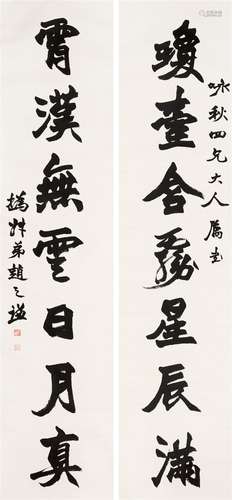 詠秋四兄大人屬書
瓊臺含霧星辰滿
霄漢無雲日月真
撝叔弟趙之謙